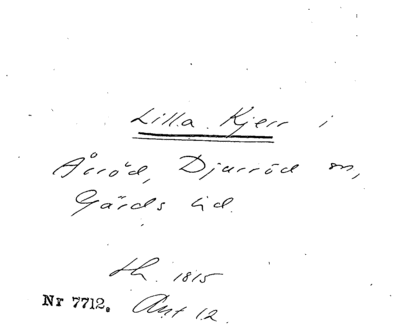 Lilla Kjerr i
Årröd, Djurröd sn,
Gärds hd.
1815
Nr 7712. Ant 12.